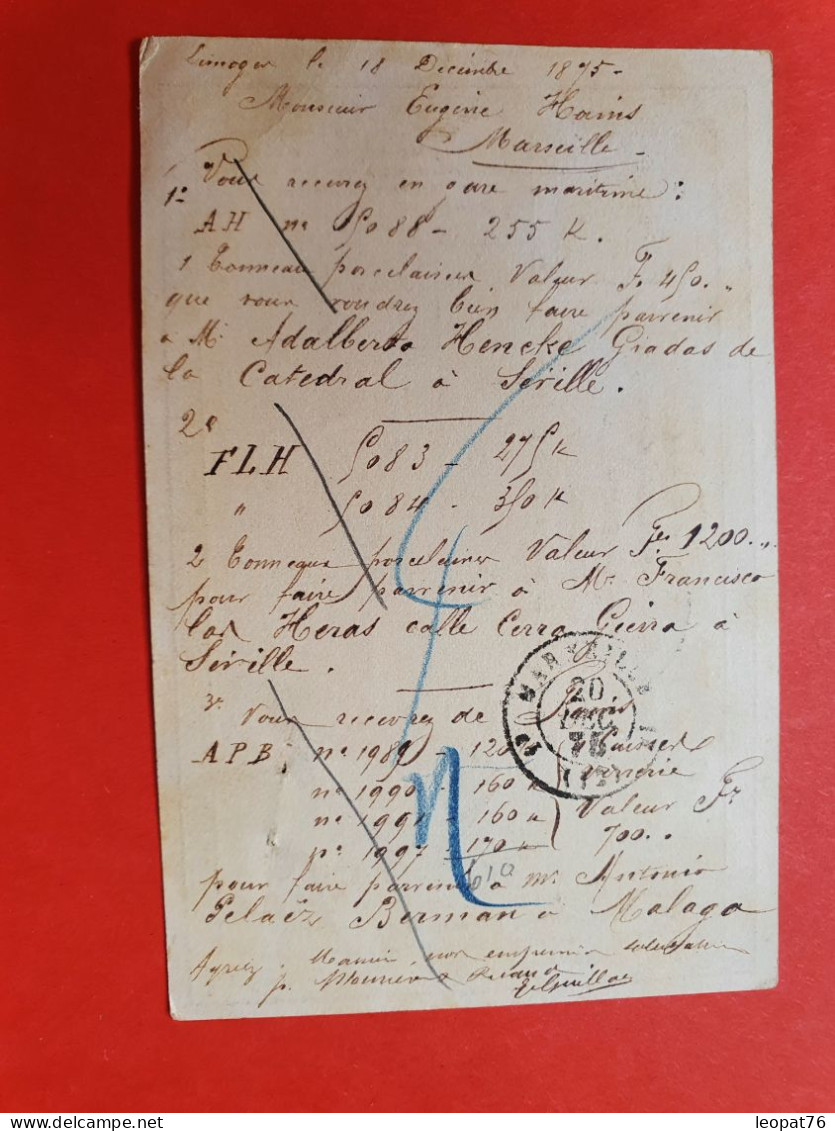 Limoges le 18 Décembre 1875-
Monsieur Eugène Hains
Marseille -
1º Vous recevrez en gare maritime :
AH nº 5088 - 255 K.
1 Tonneau porcelaines Valeur F. 450. "
que vous voudrez bien faire parvenir
à Mr Adalberto Hencke Gradas de
la Catedral à Séville.
2º
FLH 5083 - 275 K
" 5084 - 350 K
2 Tonneaux porcelaines Valeur Frs 1200. "
pour faire parvenir à Mr Francisco
las Heras calle Cerra
à
Séville.
3º Vous recevrez de
APB nº 1989 - 120
Caisses
nº 1990 - 160 K
verrerie
nº 1991 - 160 K
Valeur Fr
nº 1997 - 170 K
700. "
610
pour faire parvenir à Mr Antonio
Pelaëz Berman à Malaga
Agréez, Monsieur, nos
p.
MARSEILLE
20
DEC
75
leopat76